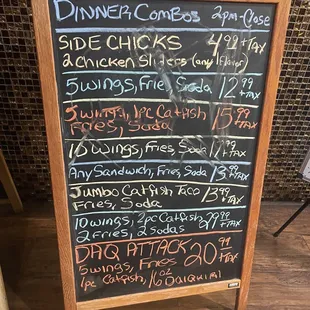 DINNER COMBOS 2pm-Close
SIDE CHICKS 4.99 +TAX
2 Chicken Sliders (any flavor)
5 wings, Fries, Soda 12.99 +TAX
5 wings, 1pc Catfish 15.99 +TAX
Fries, Soda
10 wings, Fries, Soda +TAX
Any Sandwich, Fries, Soda 13.99 +TAX
Jumbo Catfish Taco 13.99 +TAX
Fries, Soda
10 wings, 2pc Catfish 29.99 +TAX
2 Fries, 2 Sodas
DAQ ATTACK 20.99 +TAX
5 wings, Fries
1pc Catfish, 16oz Daiquiri